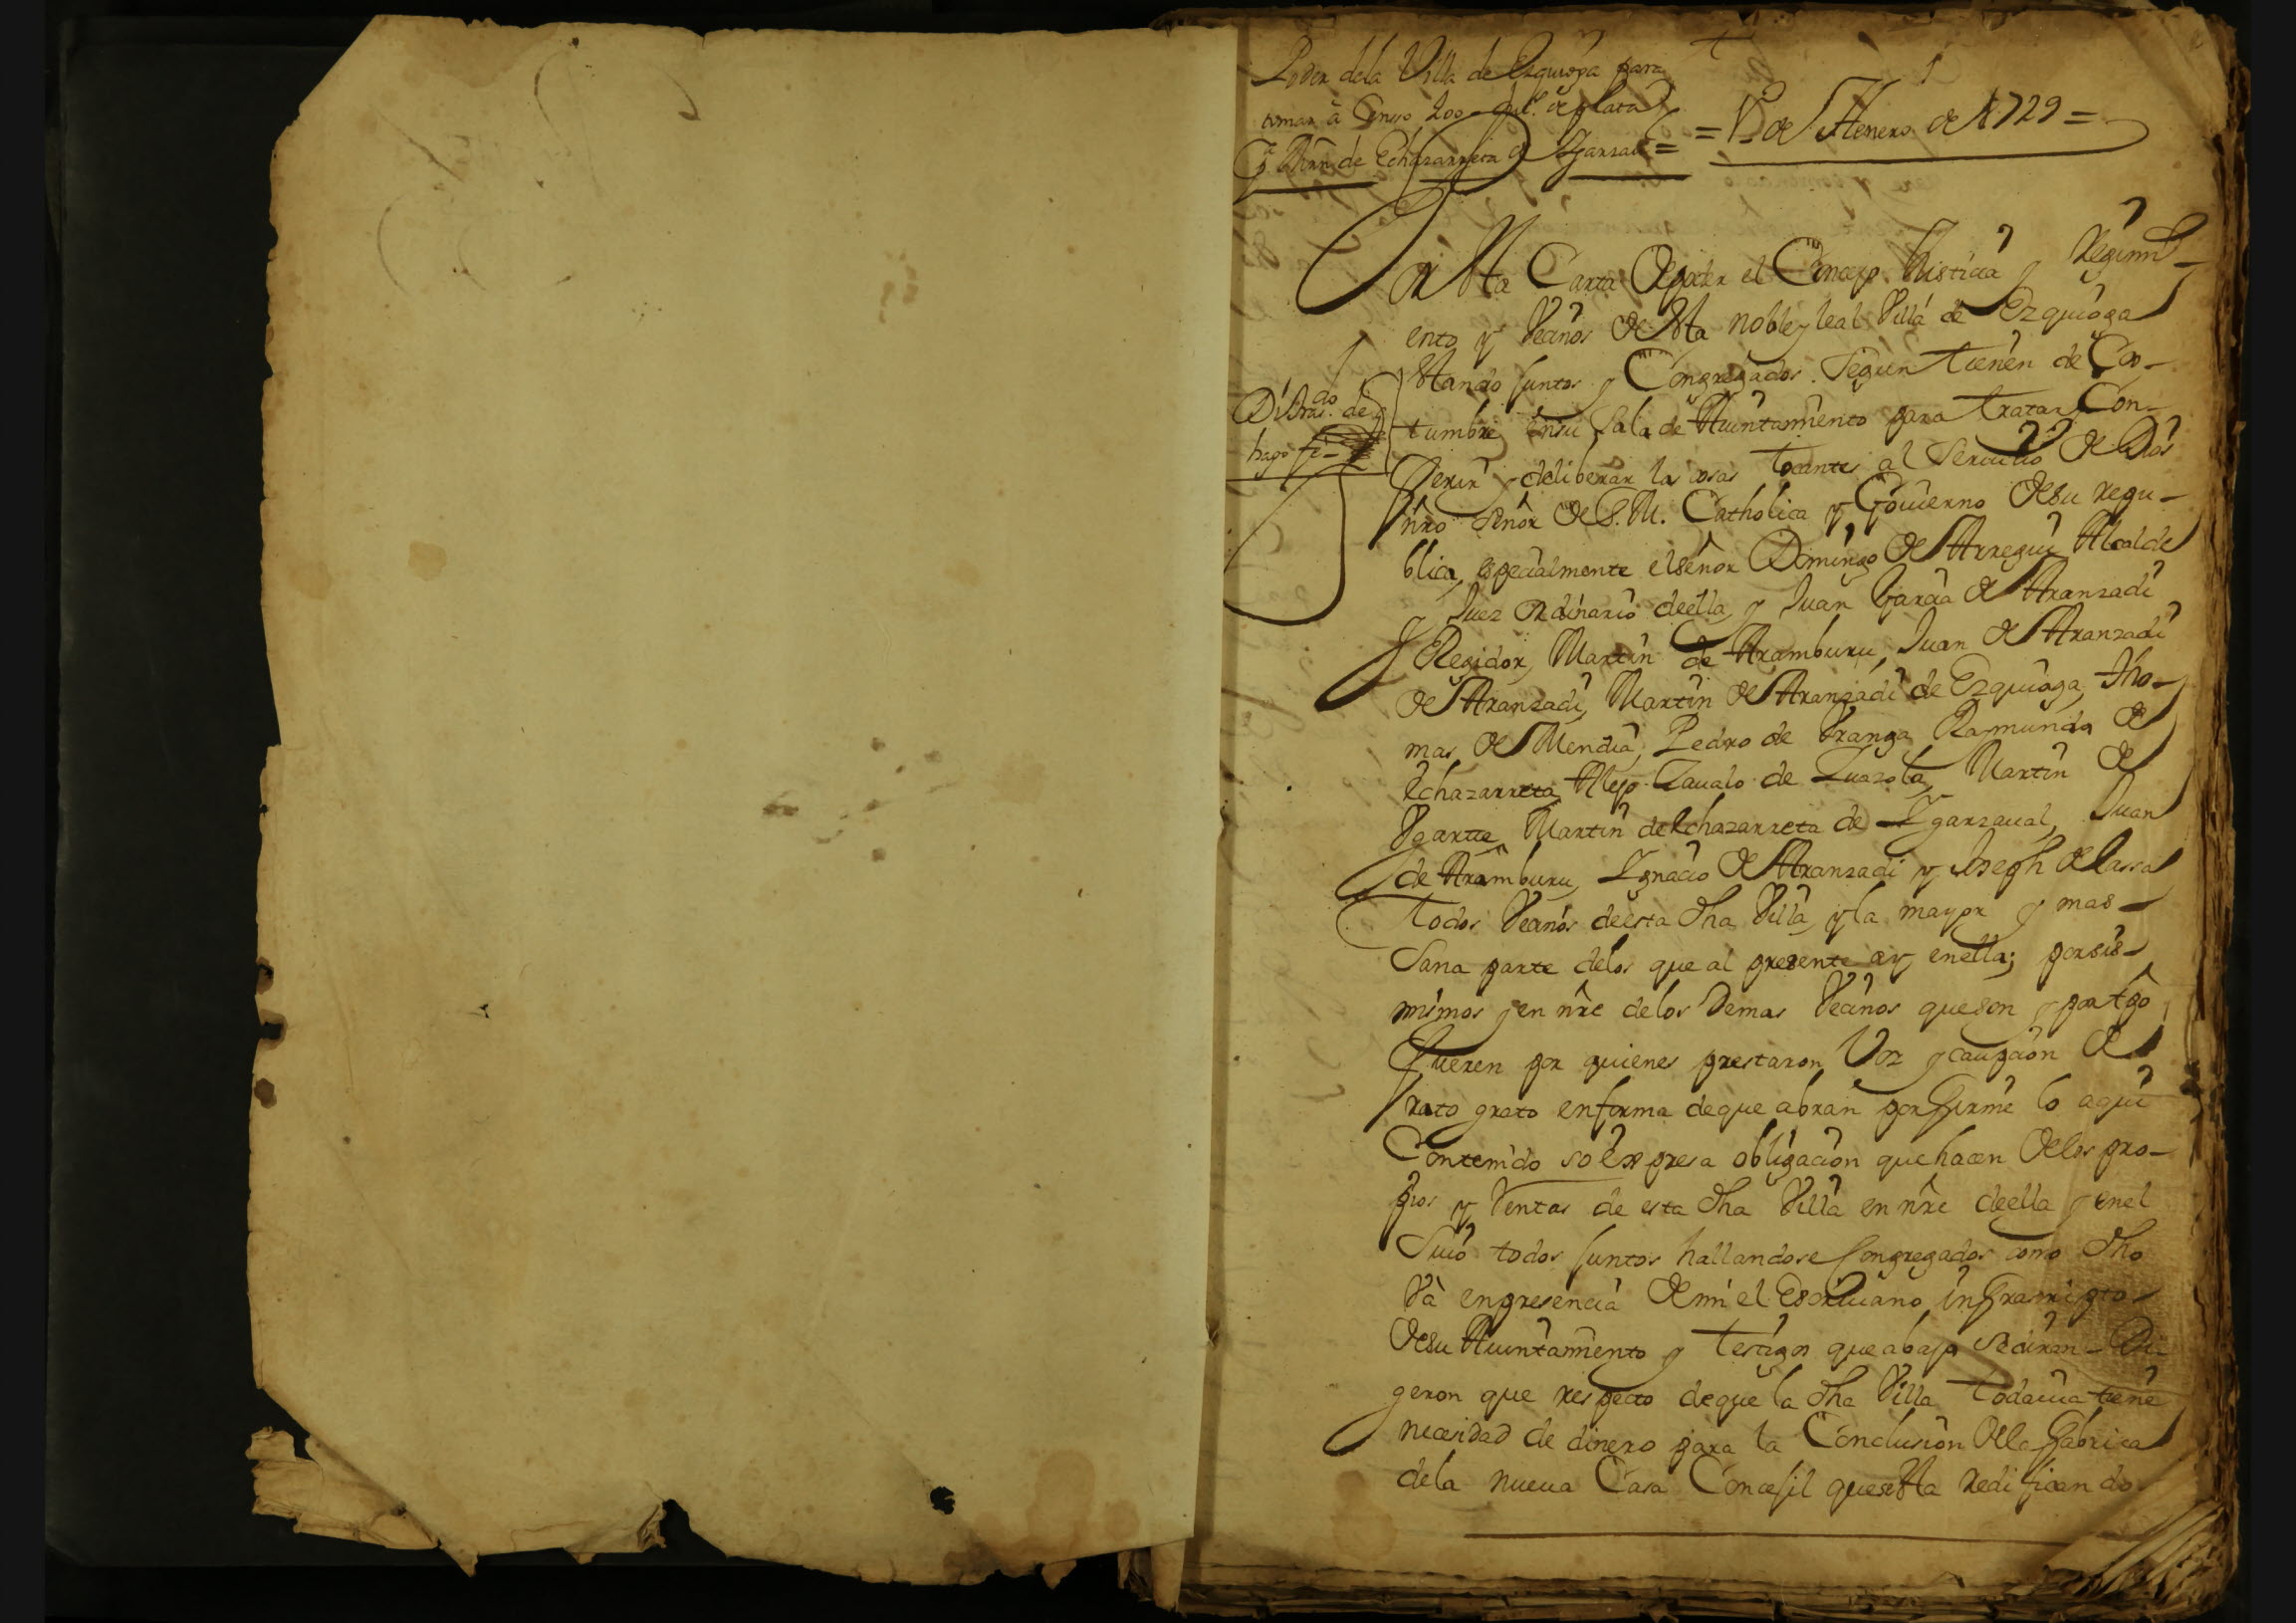 Poder dela Villa de Ezquioga para
tomar à Censo 200 du.s de plata
p.a Mrn. de Echazarreta de Ygarzabal =
1
= 1.º de Henero de 1729 =
En Esta Carta de poder el Concejo Justicia y Regimi-
ento y Vecinos de esta noble y leal Villa de Ezquioga
estando juntos y Congregados segun tienen de Cos-
tumbre en su sala de Aiuntamiento para tratar Con-
ferir y deliberar las cosas tocantes al servicio de Dios
nro señor de S. M. Catholica y Govierno de su repu-
blica, especialmente el señor Domingo de Arregui Alcalde
y Juez ordinario de ella, y Juan Garcia de Aranzadi
Regidor, Martin de Aramburu, Juan de Aranzadi
de Aranzadi, Martin de Aranzadi de Ezquioga, Tho-
mas de Mendia, Pedro de Vranga, Raimundo de
Echazarreta, Alejo Zavalo de Zuazola, Martin de
Vgarte, Martin de Echazarreta de Ygarzaval, Juan
de Aramburu, Ygnacio de Aranzadi y Joseph de Lassa
todos Vecinos de esta dha Villa, y la mayor y mas
sana parte delos que al presente ay en ella; por sis
mismos y en nre delos demas Vecinos que son y por tpo
fueren por quienes prestaron Voz y caupcion de
rato grato en forma de que abran por firme lo aqui
Contenido so expresa obligacion que hacen delos pro-
pios y Rentas de esta dha Villa en nre de ella y en el
suio todos juntos hallandose Congregados como dho
Và en presencia de mi el Escriuano infrascripto
de su Aiuntamiento y testigos que abajo se diran - Di-
geron que respecto de que la dha Villa todauia tiene
necesidad de dinero para la Conclusion de la fabrica
dela nueua Casa Concejil que se esta redificando
do
hago fe